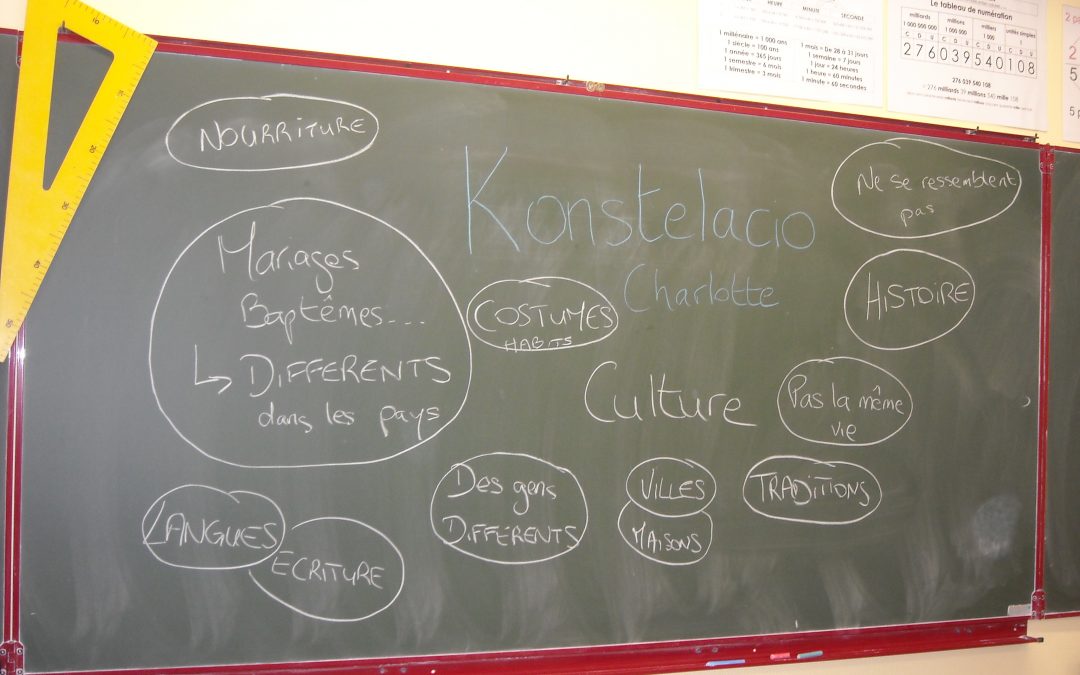 HEURE
MINUTE
SECONDE
1 millénaire = 1 000 ans
1 siècle = 100 ans
1 année = 365 jours
1 semestre = 6 mois
1 trimestre = 3 mois
1 mois = De 28 à 31 jours
1 semaine = 7 jours
1 jour = 24 heures
1 heure = 60 minutes
1 minute = 60 secondes
Le tableau de numération
milliards
1 000 000 000
millions
1 000 000
milliers
1 000
unités simples
c d u c d u c d u c d u
2 7 6 0 3 9 5 4 0 1 0 8
276 039 540 108
= 276 milliards 39 millions 540 mille 108
NOURRITURE
Konstelacio
Charlotte
Ne se ressemblent
pas
Mariages
Baptêmes...
↳ DIFFERENTS
dans les pays
COSTUMES
HABITS
HISTOIRE
Culture
Pas la même
vie
LANGUES
ECRITURE
Des gens
DIFFÉRENTS
VILLES
MAISONS
TRADITIONS